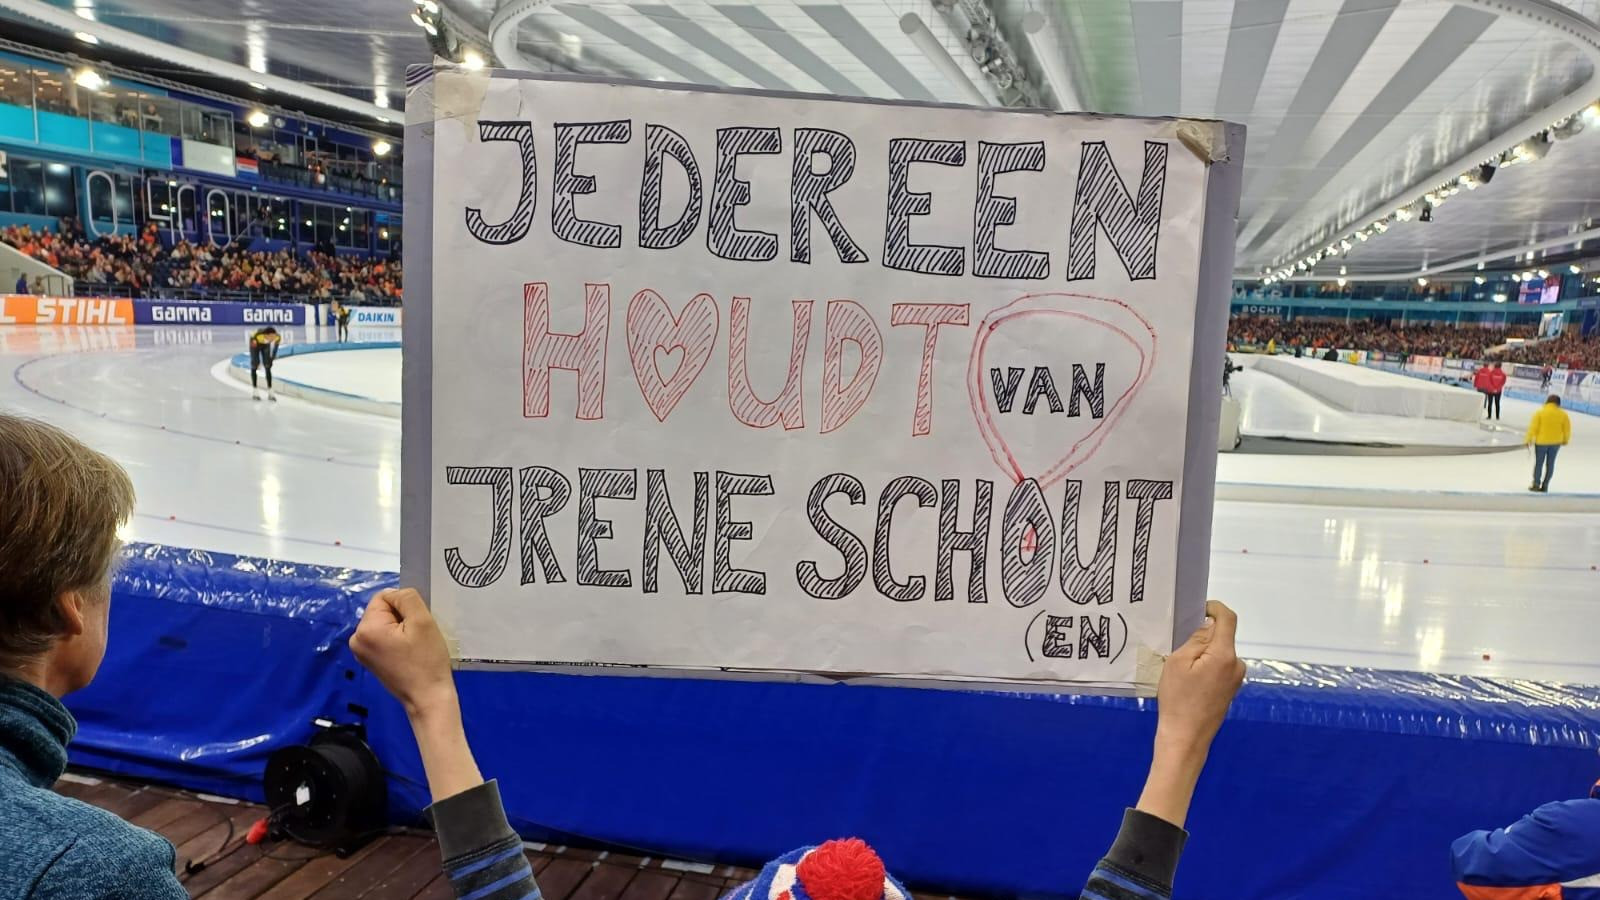 JEDEREEN
HOUDT VAN
JRENE SCHOUT
(EN)
STIHL
GAMMA GAMMA
DAIKIN
BOCHT